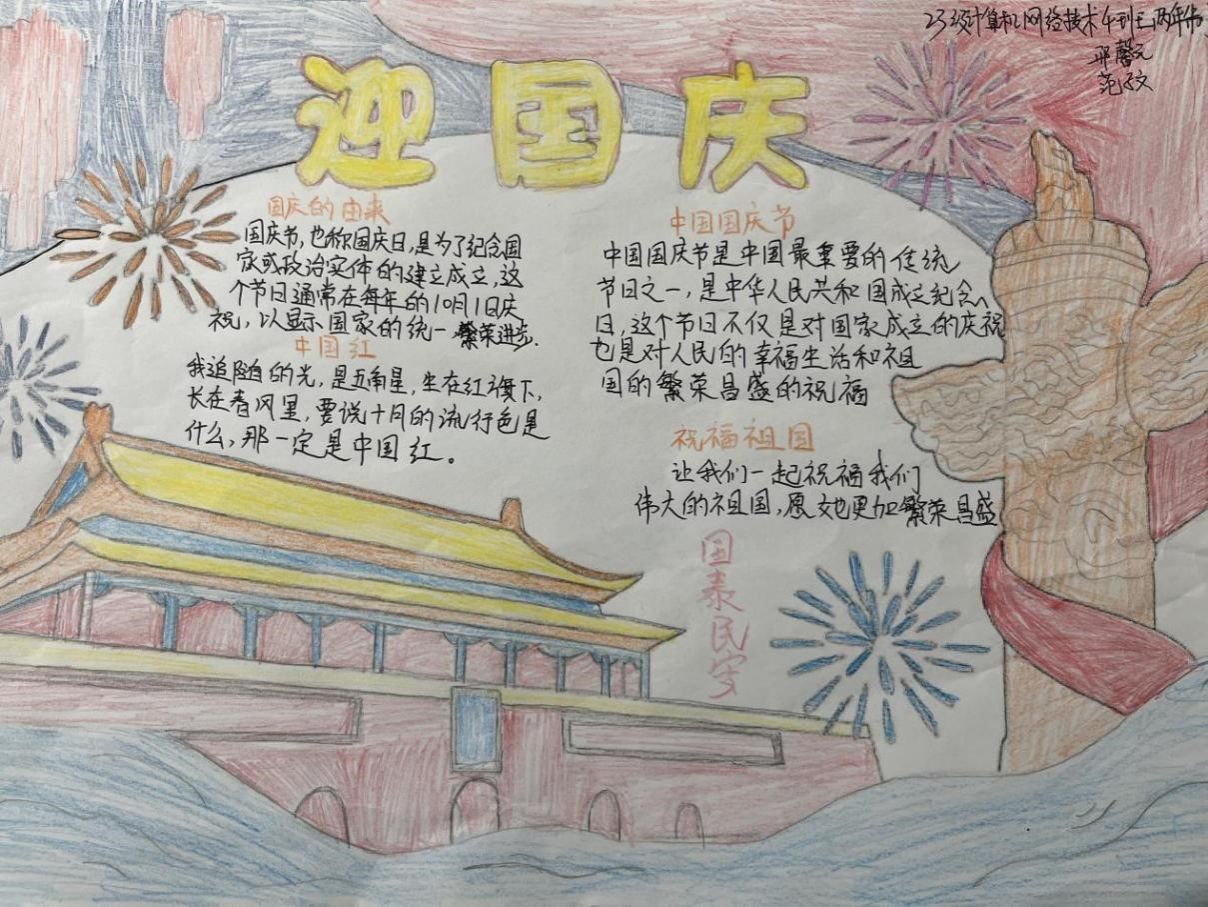 23级计算机网络技术
馨元
范
迎国庆
国庆的由来
国庆节,也称国庆日,是为了纪念国
家或政治实体的建立成立,这
个节日通常在每年的10月1日庆
祝,以显示国家的统一繁荣进步.
中国红
我追随的光,是五角星,生在红旗下,
长在春风里,要说十月的流行色是
什么,那一定是中国红。
中国国庆节
中国国庆节是中国最重要的传统
节日之一,是中华人民共和国成立纪念
日,这个节日不仅是对国家成立的庆祝
也是对人民的幸福生活和祖
国的繁荣昌盛的祝福
祝福祖国
让我们一起祝福我们
伟大的祖国,愿她更加繁荣昌盛
国泰民安